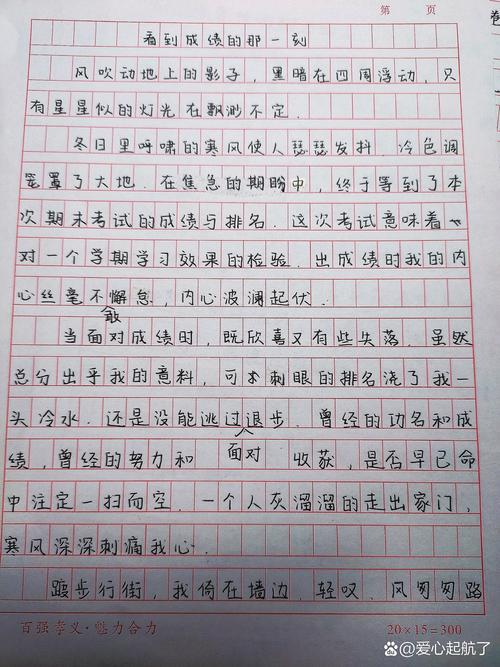 第 页
看到成绩的那一刻
风吹动地上的影子，黑暗在四周浮动，只
有星星似的灯光在飘渺不定.
冬日里呼啸的寒风使人瑟瑟发抖.冷色调
笼罩了大地.在焦急的期盼中，终于等到了本
次期末考试的成绩与排名.这次考试意味着
对一个学期学习效果的检验.出成绩时我的内
心丝毫不敢懈怠，内心波澜起伏.
当面对成绩时，既欣喜又有些失落.虽然
总分出乎我的意料，可刺眼的排名浇了我一
头冷水.还是没能逃过退步.曾经的功名和成
绩，曾经的努力和面对 收获，是否早已命
中注定一扫而空.一个人灰溜溜的走出家门，
寒风深深刺痛我心.
踱步行街，我倚在墙边.轻叹.风匆匆路
百强孝义·魅力合力 20×15=300
@爱心起航了